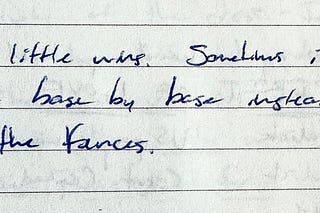 little wins. Sometimes i
base by base instea
the fences.